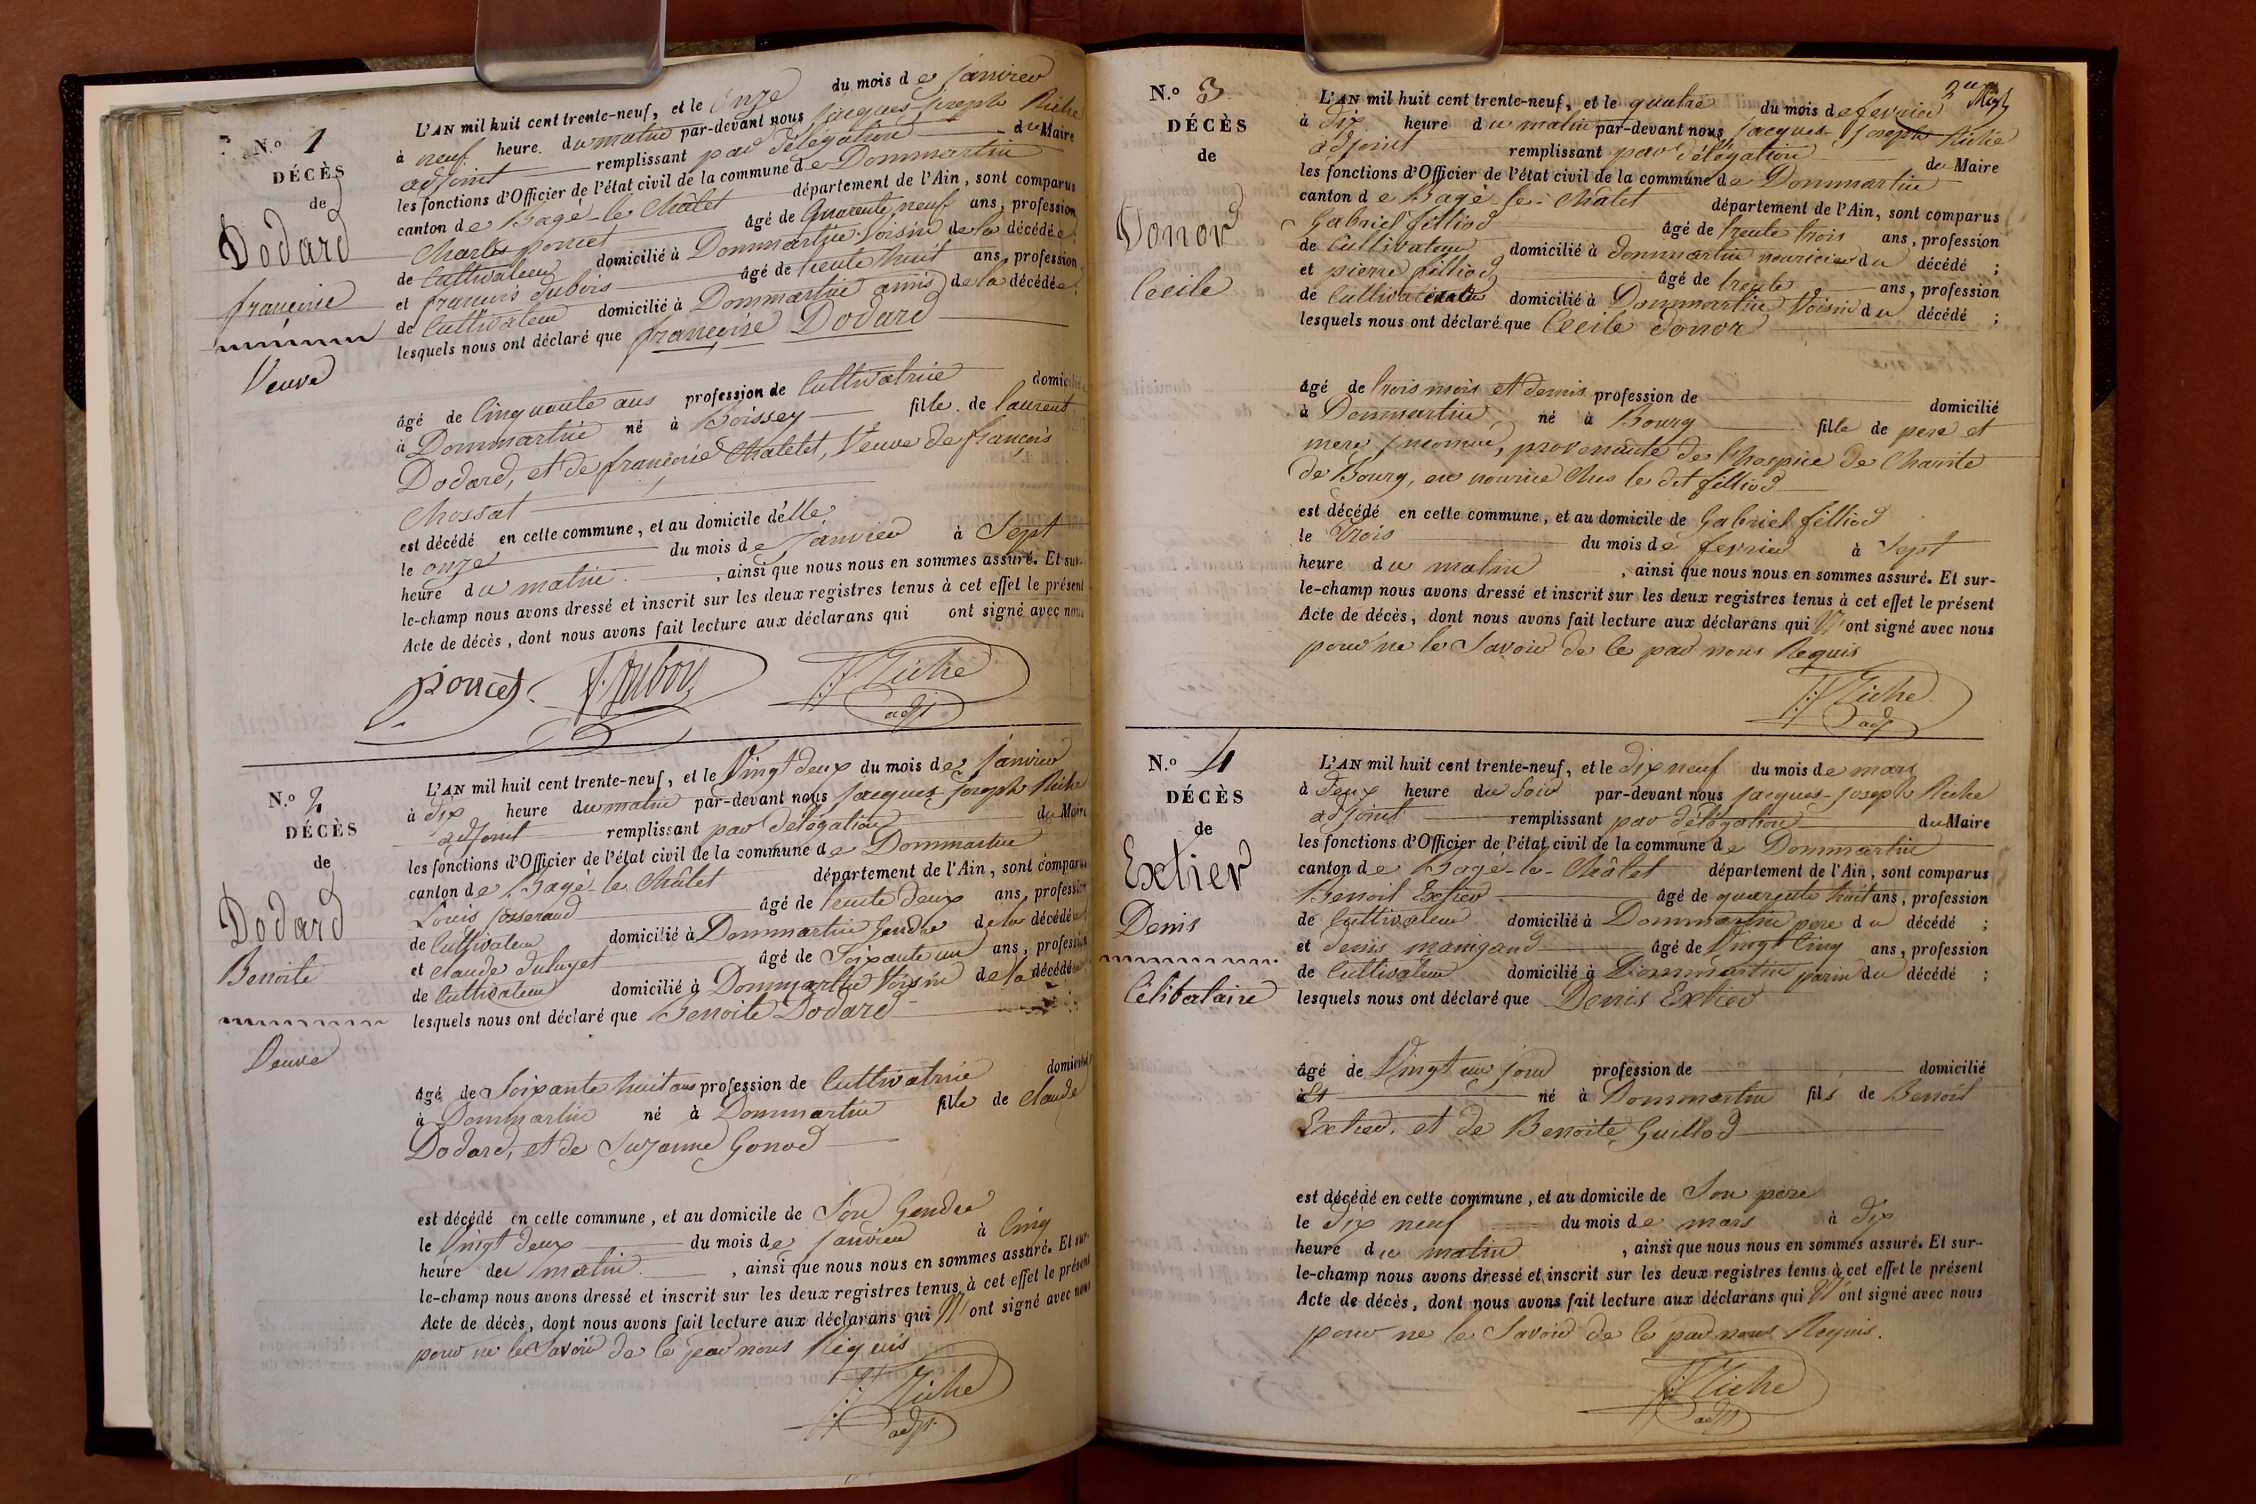 N.o 1
DÉCÈS
de
Dodard
françoise
Veuve
L'AN mil huit cent trente-neuf, et le onze du mois de janvier
à neuf heure du matin par-devant nous jacques-joseph Riche
adjoint remplissant par délégation du Maire
les fonctions d'Officier de l'état civil de la commune de Dommartin
canton de Bagé-le-Châtel département de l'Ain, sont comparus
Charles poncet âgé de quarente neuf ans, profession
de Cultivateur domicilié à Dommartin Voisin de la décédée;
et françois dubois âgé de trente huit ans, profession
de Cultivateur domicilié à Dommartin amis de la décédée;
lesquels nous ont déclaré que françoise Dodard
âgé de Cinquante ans profession de Cultivatrice domicilié
à Dommartin né à Boissey fille de laurent
Dodard, et de françoise Chatelet, Veuve de françois
Chossat
est décédé en cette commune, et au domicile d'elle
le onze du mois de janvier à Sept
heure du matin, ainsi que nous nous en sommes assuré. Et sur-
le-champ nous avons dressé et inscrit sur les deux registres tenus à cet effet le présent
Acte de décès, dont nous avons fait lecture aux déclarans qui ont signé avec nous
poncet f. Dubois J. J. Riche
adj.
N.o 2
DÉCÈS
de
Dodard
Benoite
Veuve
L'AN mil huit cent trente-neuf, et le Vingt deux du mois de janvier
à dix heure du matin par-devant nous jacques-joseph Riche
adjoint remplissant par délégation du Maire
les fonctions d'Officier de l'état civil de la commune de Dommartin
canton de Bagé-le-Châtel département de l'Ain, sont comparus
Louis josserand âgé de trente deux ans, profession
de Cultivateur domicilié à Dommartin gendre de la décédée
et claude duluyet âgé de Soixante un ans, profession
de Cultivateur domicilié à Dommartin Voisin de la décédée
lesquels nous ont déclaré que Benoite Dodard
âgé de Soixante huit ans profession de Cultivatrice domicilié
à Dommartin né à Dommartin fille de claude
Dodard, et de Suzanne Gonod
est décédé en cette commune, et au domicile de Son Gendre
le Vingt deux du mois de janvier à Cinq
heure du matin, ainsi que nous nous en sommes assuré. Et sur-
le-champ nous avons dressé et inscrit sur les deux registres tenus à cet effet le présent
Acte de décès, dont nous avons fait lecture aux déclarans qui N'ont signé avec nous
pour ne le Savoir de ce par nous Requis
J. J. Riche
adj.
2eme
N.o 3
DÉCÈS
de
Donor
Cecile
L'AN mil huit cent trente-neuf, et le quatre du mois de fevrier
à dix heure du matin par-devant nous jacques-joseph Riche
adjoint remplissant par délégation du Maire
les fonctions d'Officier de l'état civil de la commune de Dommartin
canton de Bagé-le-Châtel département de l'Ain, sont comparus
Gabriel filliod âgé de trente trois ans, profession
de Cultivateur domicilié à dommartin nouricier du décédé;
et pierre filliod âgé de trente ans, profession
de Cultivateur domicilié à Dommartin Voisin du décédé;
lesquels nous ont déclaré que Cecile Donor
âgé de trois mois et demis profession de domicilié
à Dommartin né à Bourg fille de pere et
mere inconnue, provenante de l'hospice de Charité
de Bourg, en nourrice Ches le dit filliod
est décédé en cette commune, et au domicile de Gabriel filliod
le trois du mois de fevrier à Sept
heure du matin, ainsi que nous nous en sommes assuré. Et sur-
le-champ nous avons dressé et inscrit sur les deux registres tenus à cet effet le présent
Acte de décès, dont nous avons fait lecture aux déclarans qui N'ont signé avec nous
pour ne le Savoir de ce par nous Requis
J. J. Riche
adj
N.o 4
DÉCÈS
de
Extier
Denis
Célibataire
L'AN mil huit cent trente-neuf, et le dix neuf du mois de mars
à deux heure du Soir par-devant nous jacques-joseph Riche
adjoint remplissant par délégation du Maire
les fonctions d'Officier de l'état civil de la commune de Dommartin
canton de Bagé-le-Châtel département de l'Ain, sont comparus
Benoit Extier âgé de quarente huit ans, profession
de Cultivateur domicilié à Dommartin pere du décédé;
et denis maingand âgé de Vingt Cinq ans, profession
de Cultivateur domicilié à Dommartin parin du décédé;
lesquels nous ont déclaré que Denis Extier
âgé de Vingt un jour profession de domicilié
à né à Dommartin fils de Benoit
Extier, et de Benoite Guillod
est décédé en cette commune, et au domicile de Son pere
le dix neuf du mois de mars à dix
heure du matin, ainsi que nous nous en sommes assuré. Et sur-
le-champ nous avons dressé et inscrit sur les deux registres tenus à cet effet le présent
Acte de décès, dont nous avons fait lecture aux déclarans qui N'ont signé avec nous
pour ne le Savoir de ce par nous Requis.
J. J. Riche
adj